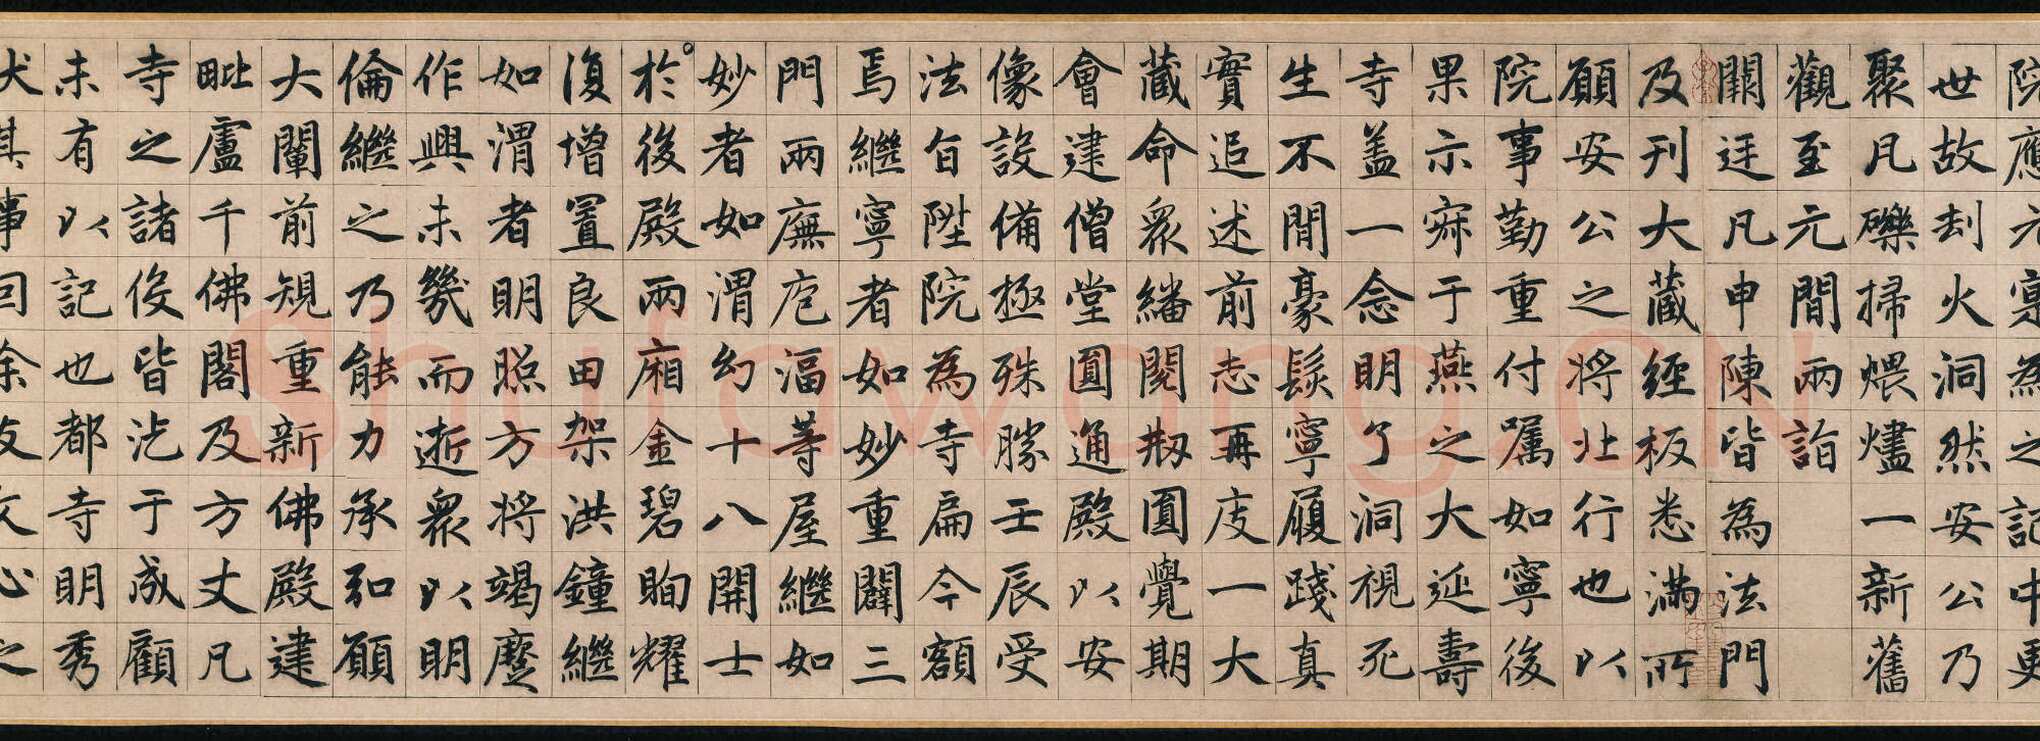 院應元寔為之記中更
世故刦火洞然安公乃
聚凡礫掃煨燼一新舊
觀至元間兩詣
闕廷凡申陳皆為法門
及刊大藏經板悉滿所
願安公之將北行也以
院事勤重付囑如寧後
果示寂于燕之大延壽
寺盖一念明了洞視死
生不間豪髮寧履踐真
實追述前志再度一大
藏命眾繙閱刱圓覺期
會建僧堂圓通殿以安
像設備極殊勝壬辰受
法旨陞院為寺扁今額
焉繼寧者如妙重闢三
門兩廡庖湢等屋繼如
妙者如渭幻十八開士
於後殿兩廂金碧眴耀
復增置良田架洪鐘繼
如渭者明照方將竭蹷
作興未幾而逝眾以明
倫繼之乃能力承弘願
大闡前規重新佛殿建
毗盧千佛閣及方丈凡
寺之諸役皆汔于成顧
未有以記也都寺明秀
狀其事囙余友文心之
Shufawang.CN